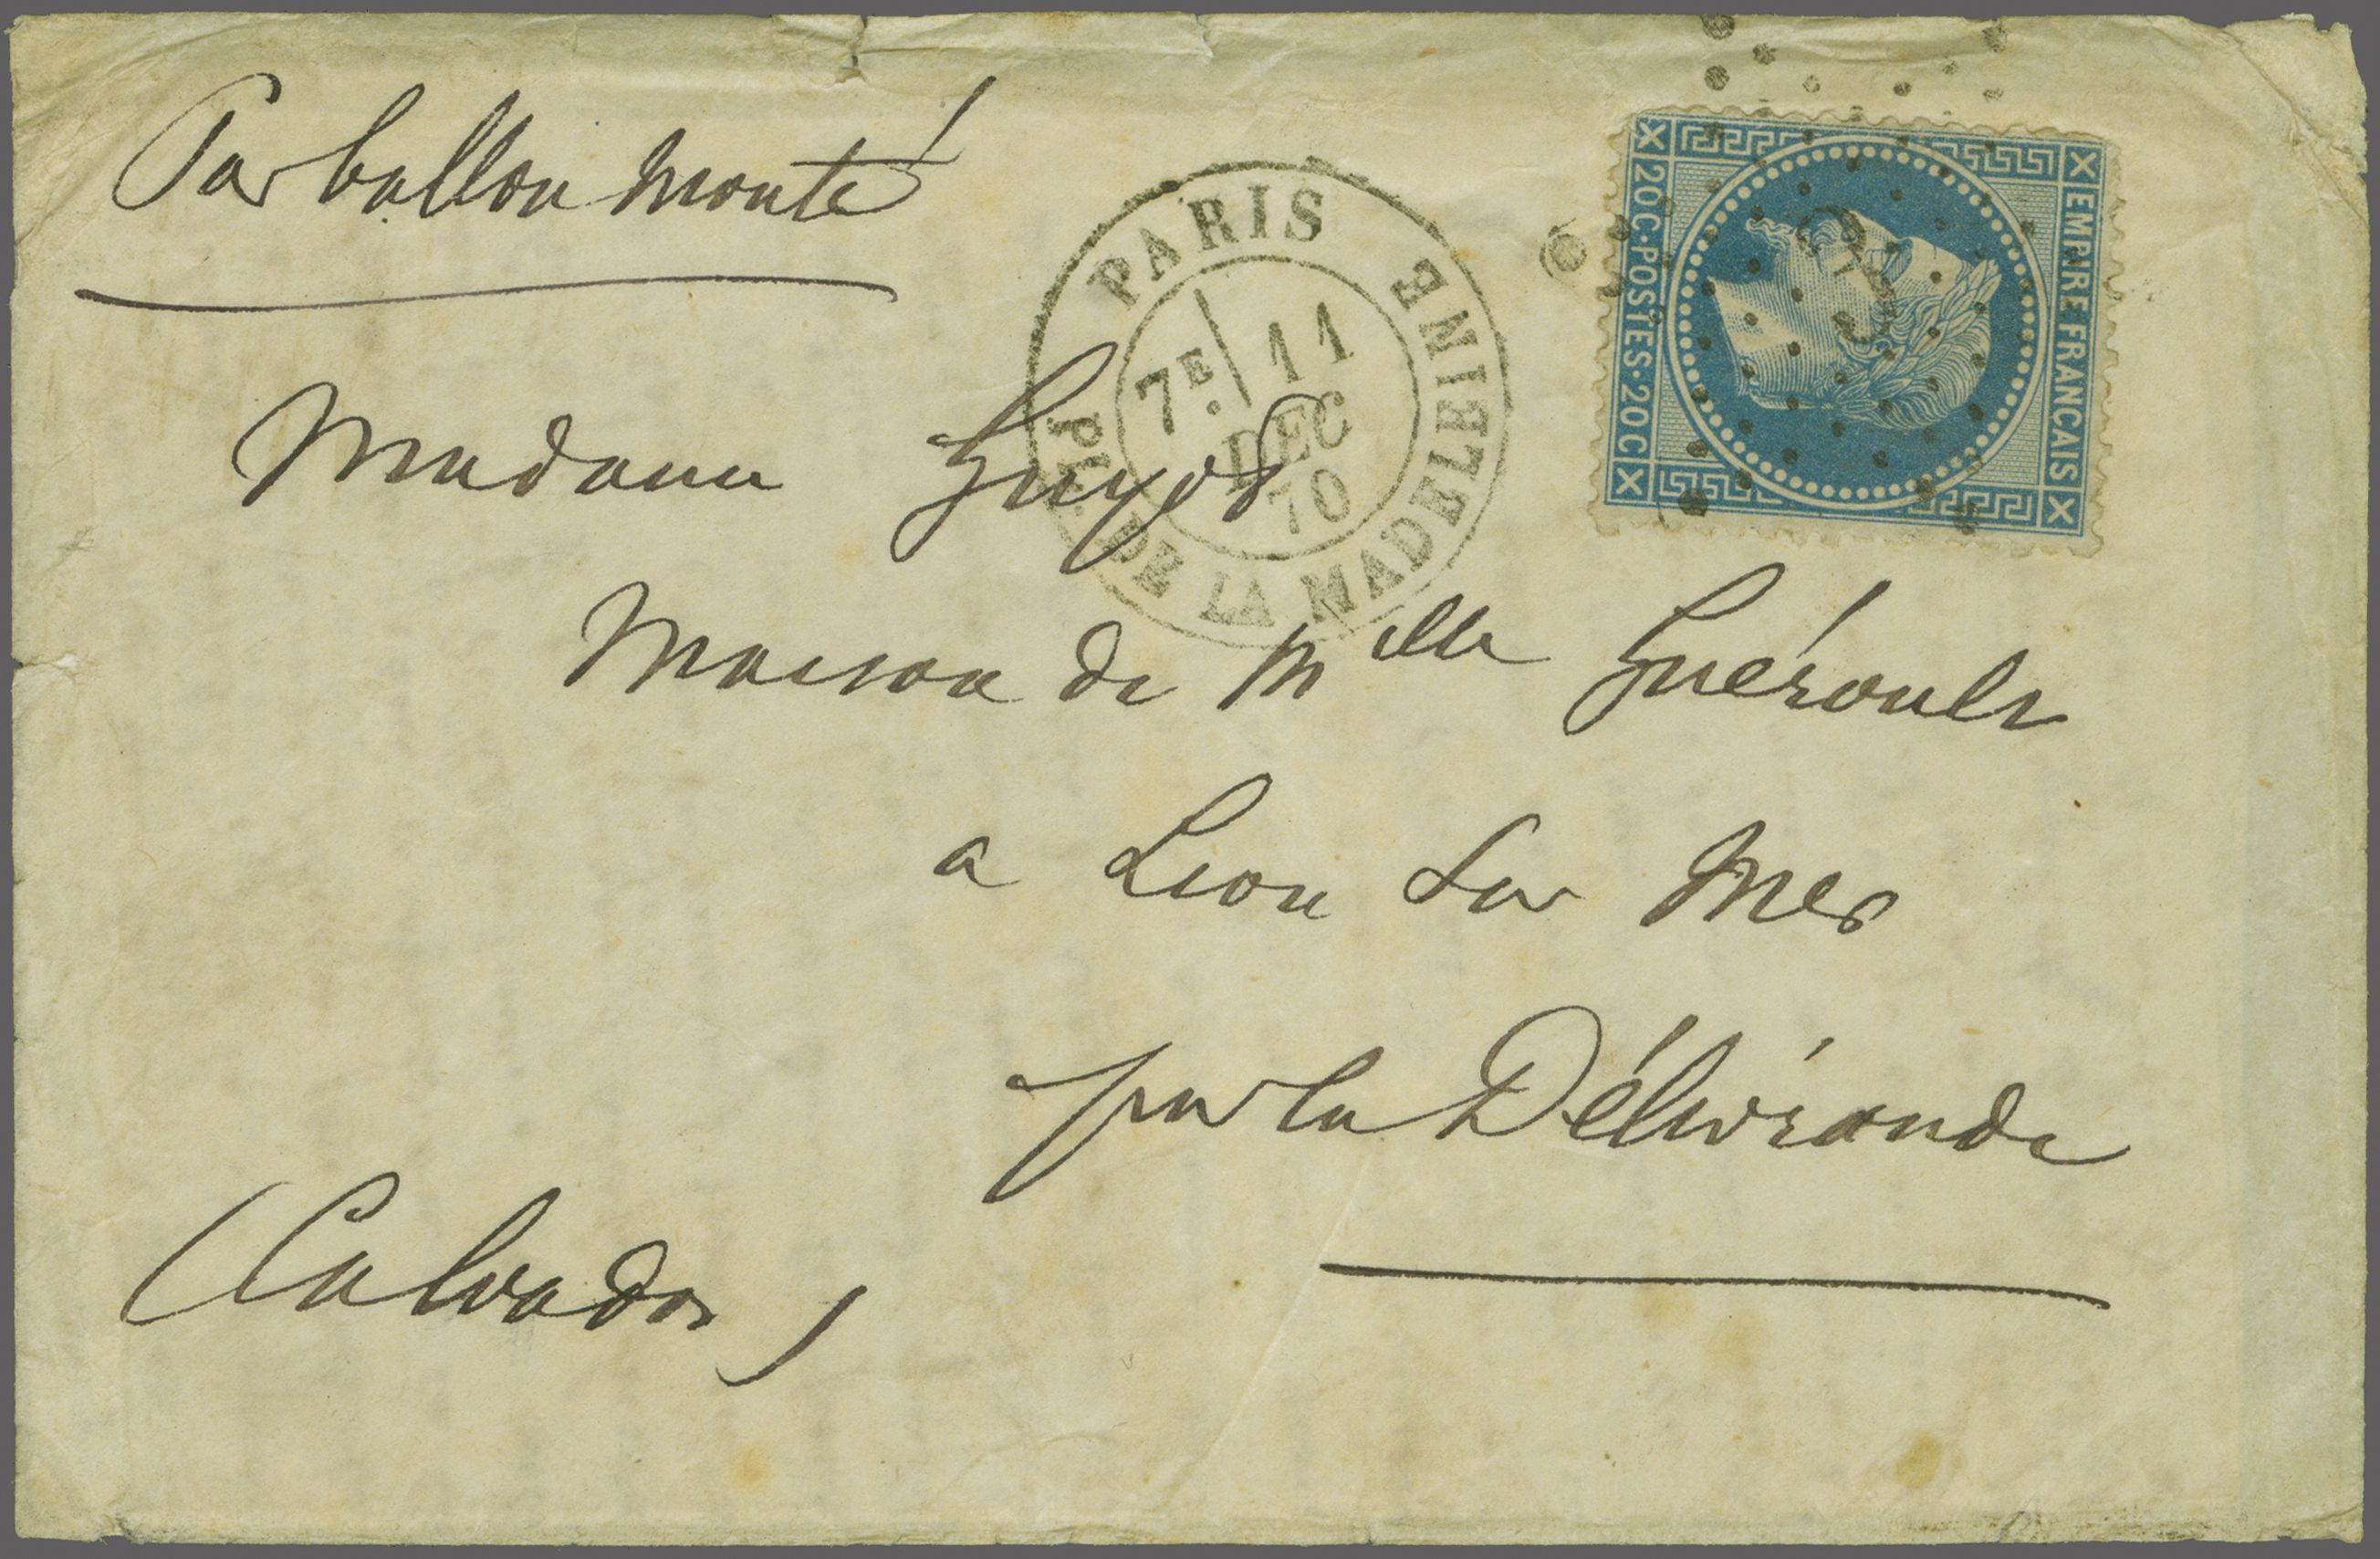 Par ballon monté
PARIS
PL. DE LA MADELEINE
7E 11
DEC
70
EMPIRE FRANCAIS
20C·POSTES·20C
Madame Guyot
Maison de Mlle Guéroult
a Lion Sur Mer
par la Délivrande
(Calvados)